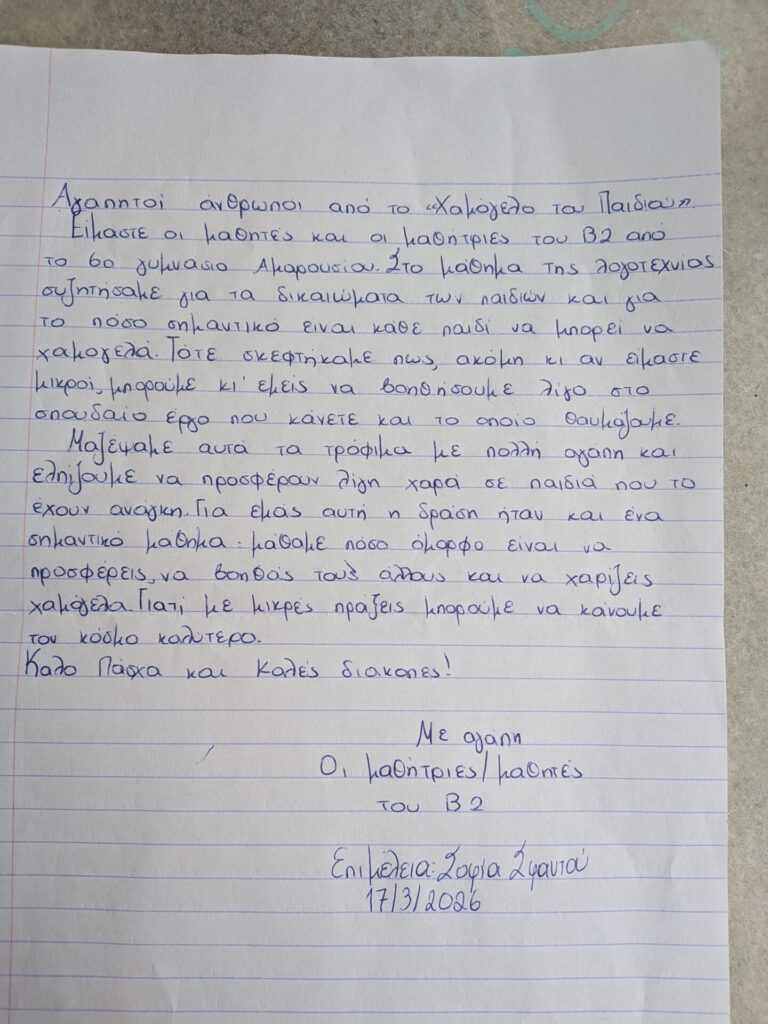 Αγαπητοί άνθρωποι από το «Χαμόγελο του Παιδιού».
Είμαστε οι μαθητές και οι μαθήτριες του Β2 από
το 6ο γυμνάσιο Αμαρουσίου. Στο μάθημα της λογοτεχνίας
συζητήσαμε για τα δικαιώματα των παιδιών και για
το πόσο σημαντικό ειναι κάθε παιδί να μπορεί να
χαμογελά. Τότε σκεφτήκαμε πως, ακόμη κι αν είμαστε
μικροί, μπορούμε κι' εμείς να βοηθήσουμε λίγο στο
σπουδαίο έργο που κάνετε και το οποίο θαυμάζουμε.
Μαζέψαμε αυτά τα τρόφιμα με πολλή αγάπη και
ελπίζουμε να προσφέρουν λίγη χαρά σε παιδιά που το
έχουν ανάγκη. Για εμάς αυτή η δράση ήταν και ένα
σημαντικό μάθημα: μάθαμε πόσο όμορφο είναι να
προσφέρεις, να βοηθάς τους άλλους και να χαρίζεις
χαμόγελα. Γιατί με μικρές πράξεις μπορούμε να κάνουμε
τον κόσμο καλύτερο.
Καλο Πάσχα και Καλές διακοπες!
Με αγάπη
Οι μαθήτριες/μαθητές
του Β2
Επιμέλεια: Σοφία Σφαντού
17/3/2026